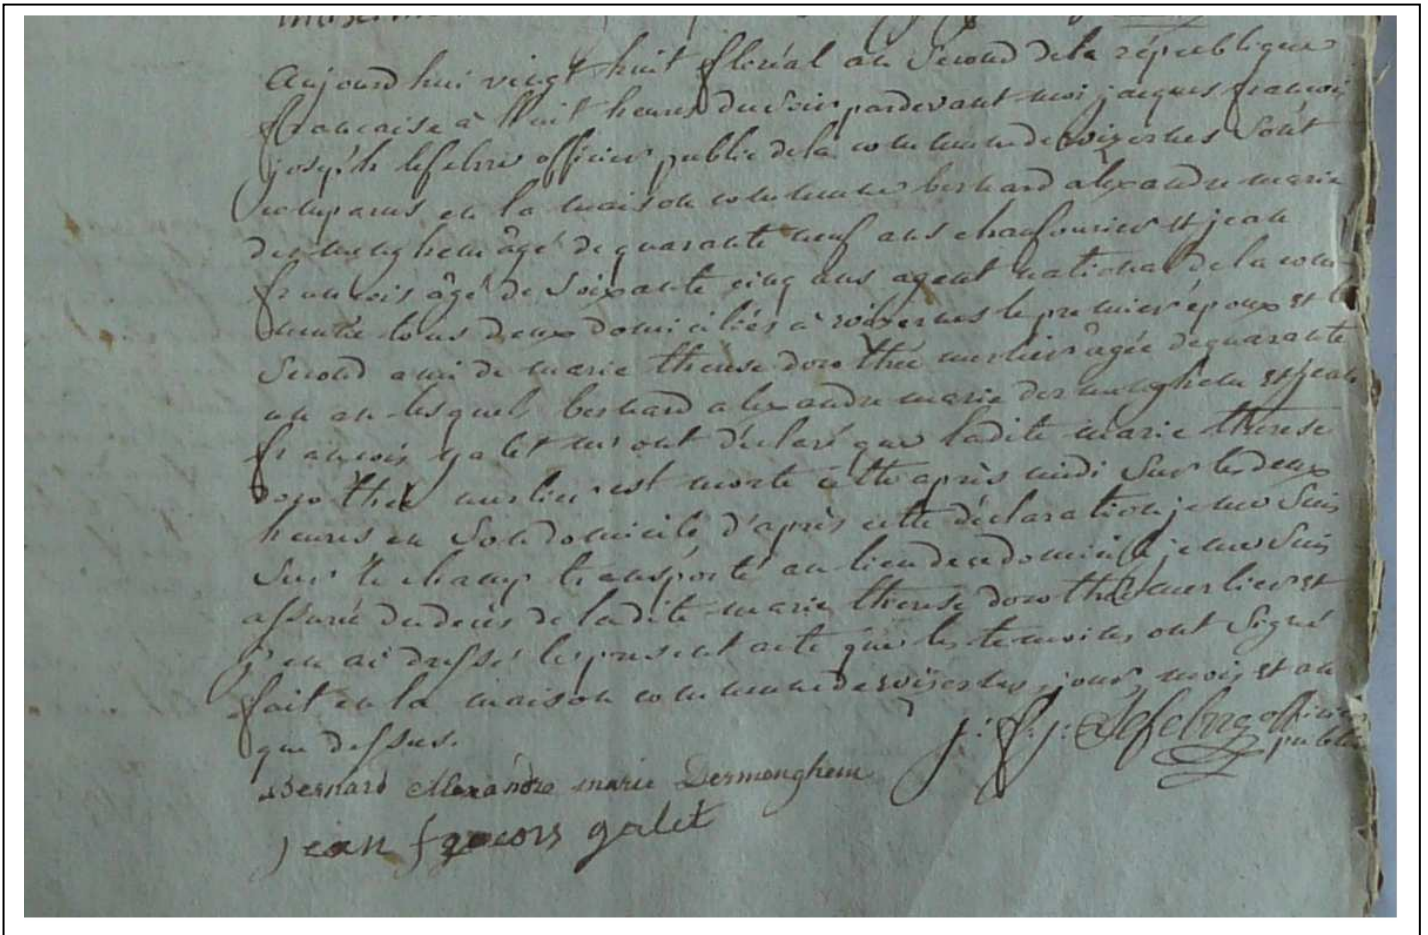 Aujourd hui vingt huit floréal an Second de la république
francaise à huit heures du Soir pardevant moi jacques francois
joseph lefebvre officier public de la commune de wizernes Sont
comparus en la maison commune bernard alexandre marie
dermenghem âgé de quarante neuf ans chaufournier et jean
francois âgé de Soixante cinq ans agent national de la com-
mune tous deux domiciliés à wizernes le premier époux et le
Second ami de marie therese dorothée merlier âgée de quarante
un an lesquels bernard alexandre marie dermenghem et jean
francois galet m'ont déclaré que ladite marie therese
dorothée merlier est morte cette après midi Sur les deux
heures en Son domicile d'après cette déclaration je me Suis
Sur le champ transporté au lieu de ce domicile je me Suis
assuré du deces de ladite marie therese dorothée merlier et
j'en ai dressé le present acte que les temoins ont Signé
fait en la maison commune de wizernes jour mois et an
que dessus.
j. f. j. Lefebvre officier
public
Bernard Alexandre marie Dermenghem
jean francois galet